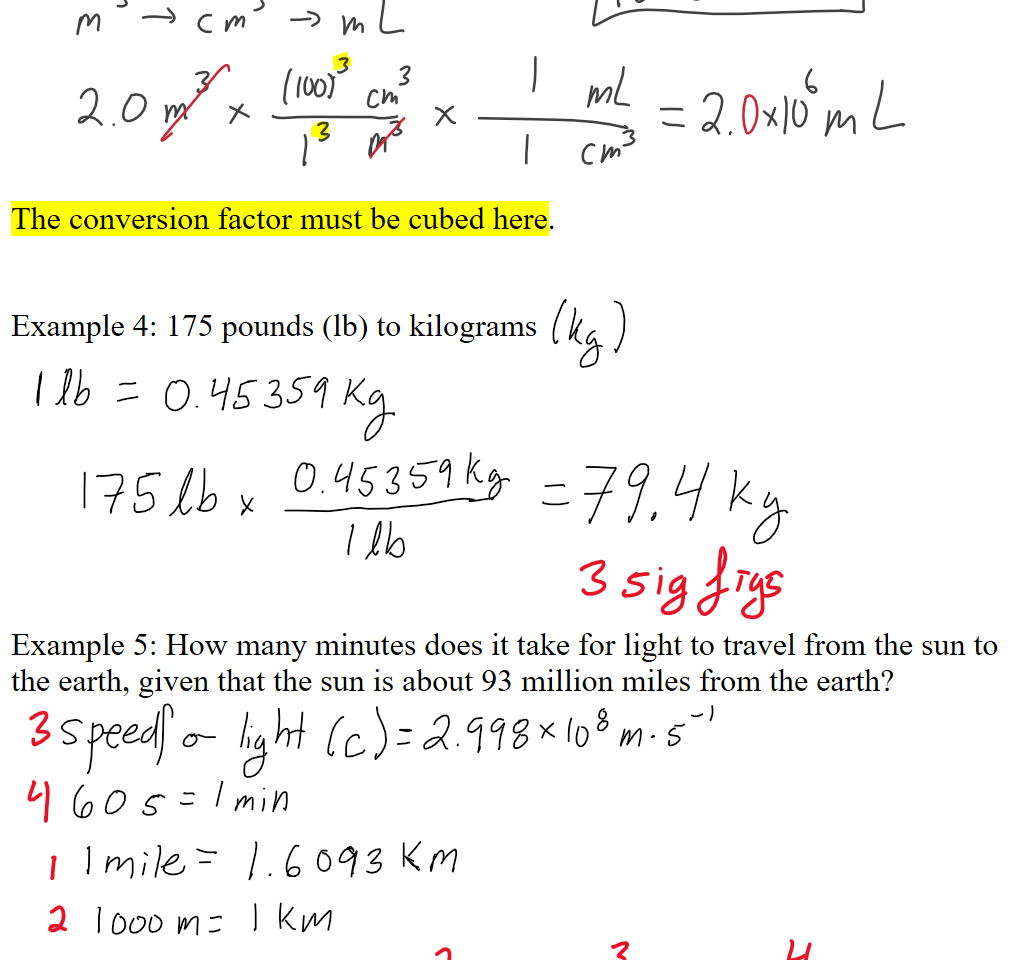 m³ → cm³ → mL
2.0 m³ × (100)³ cm³ / 1³ m³ × 1 mL / 1 cm³ = 2.0x10⁶ mL
The conversion factor must be cubed here.
Example 4: 175 pounds (lb) to kilograms (kg)
1 lb = 0.45359 Kg
175 lb x 0.45359 kg / 1 lb = 79.4 kg
3 sig figs
Example 5: How many minutes does it take for light to travel from the sun to
the earth, given that the sun is about 93 million miles from the earth?
3 speed o light (c) = 2.998 × 10⁸ m · s⁻¹
4 60 s = 1 min
1 1 mile = 1.6093 Km
2 1000 m = 1 Km
2 3 4